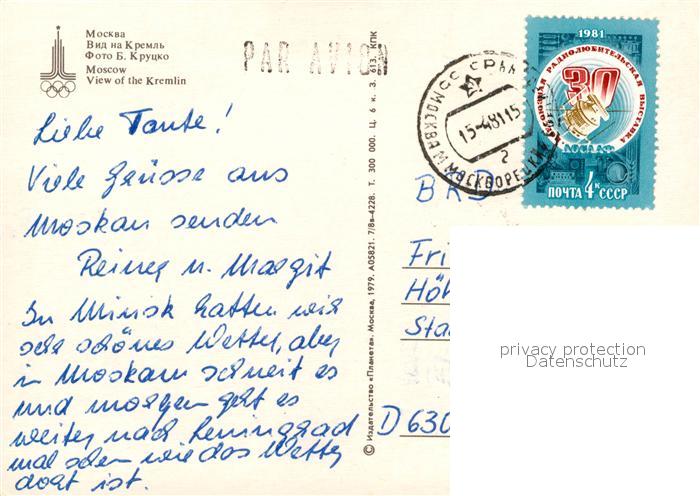 Москва
Вид на Кремль
Фото Б. Круцко
Moscow
View of the Kremlin
PAR AVION
Liebe Tante!
Viele Grüsse aus
Moskau senden
Reiner u. Margit
In Minsk hatten wir
sehr schönes Wetter, aber
in Moskau schneit es
und morgen geht es
weiter nach Leningrad
mal sehen wie das Wetter
dort ist.
© Издательство «Планета». Москва, 1979. А05821. 7/8в-4228. Т. 300 000. Ц. 6 к. З. 613. КПК
МОСКВА
МОСКВОРЕЦКИЙ
15-48115
2
1981
РАДИОЛЮБИТЕЛЬСКАЯ ВЫСТАВКА
30
ДОСААФ
ПОЧТА 4к СССР
BRD
Fri
Höh
Sta
D 630
privacy protection
Datenschutz